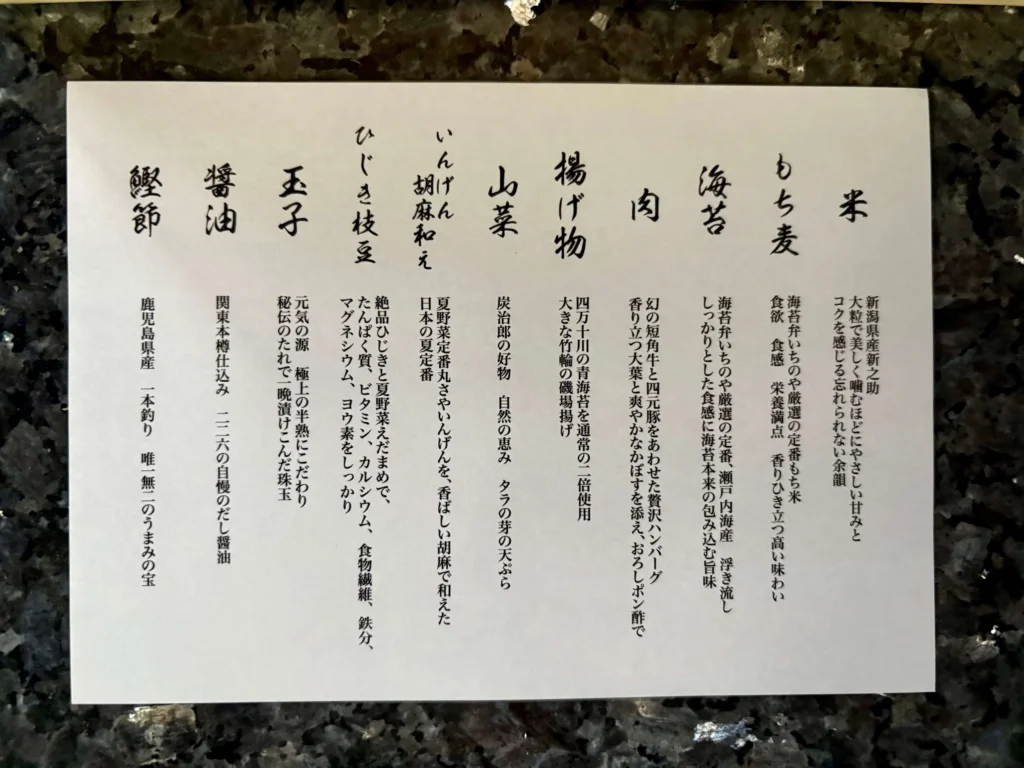 米
新潟県産新之助
大粒で美しく噛むほどにやさしい甘みと
コクを感じる忘れられない余韻
もち麦
海苔弁いちのや厳選の定番もち米
食欲　食感　栄養満点　香りひき立つ高い味わい
海苔
海苔弁いちのや厳選の定番、瀬戸内海産　浮き流し
しっかりとした食感に海苔本来の包み込む旨味
肉
幻の短角牛と四元豚をあわせた贅沢ハンバーグ
香り立つ大葉と爽やかなかぼすを添え、おろしポン酢で
揚げ物
四万十川の青海苔を通常の二倍使用
大きな竹輪の磯場揚げ
山菜
炭治郎の好物　自然の恵み　タラの芽の天ぷら
いんげん
胡麻和え
夏野菜定番丸さやいんげんを、香ばしい胡麻で和えた
日本の夏定番
ひじき枝豆
絶品ひじきと夏野菜えだまめで、
たんぱく質、ビタミン、カルシウム、食物繊維、鉄分、
マグネシウム、ヨウ素をしっかり
玉子
元気の源　極上の半熟にこだわり
秘伝のたれで一晩漬けこんだ珠玉
醤油
関東本樽仕込み　二二六の自慢のだし醤油
鰹節
鹿児島県産　一本釣り　唯一無二のうまみの宝